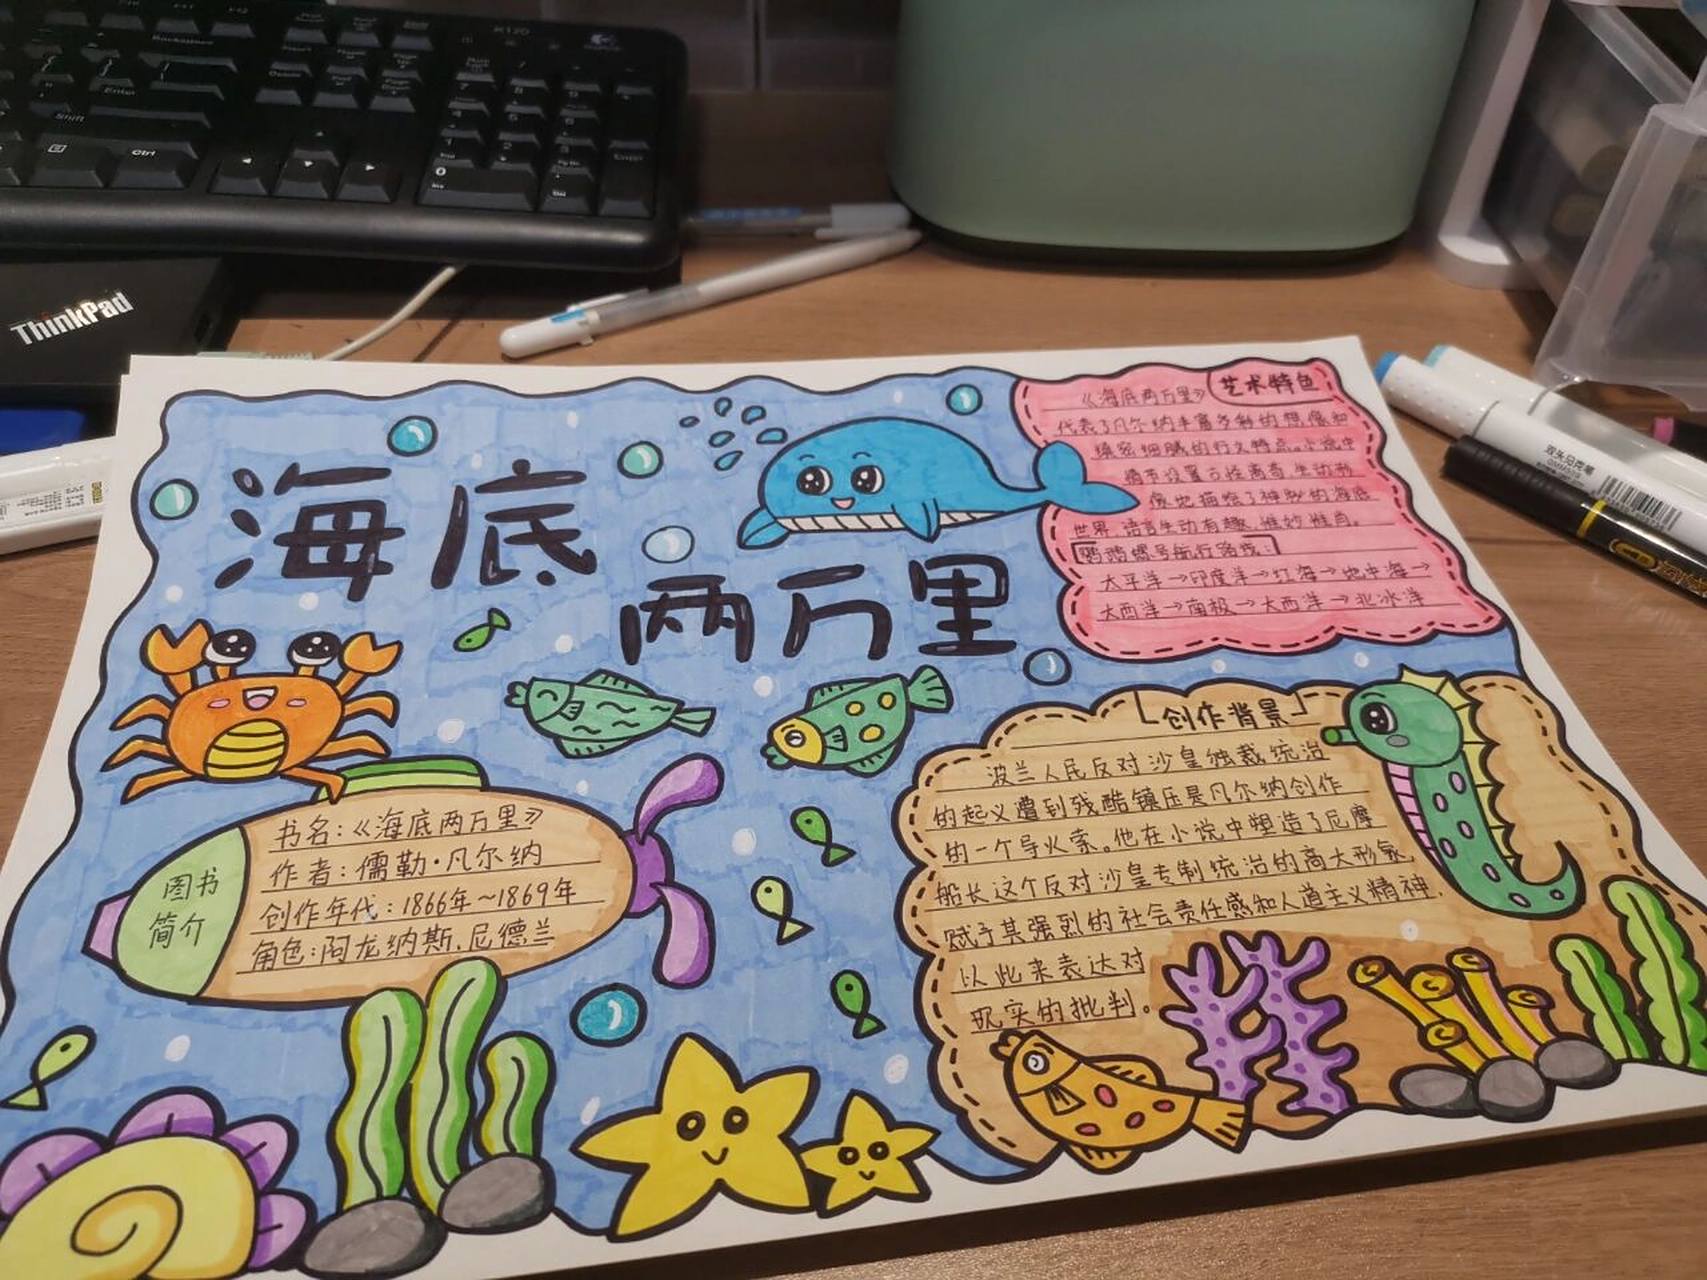 ThinkPad
K120
Enter
Shift
Ctrl
海底
两万里
艺术特色
《海底两万里》
代表了凡尔纳丰富多彩的想像和
缜密细腻的行文特点。小说中
情节设置古怪离奇,生动形
像地描绘了神秘的海底
世界,语言生动有趣,惟妙惟肖。
鹦鹉螺号航行路线:
太平洋→印度洋→红海→地中海→
大西洋→南极→大西洋→北冰洋
图书
简介
书名:《海底两万里》
作者:儒勒·凡尔纳
创作年代:1866年~1869年
角色:阿龙纳斯.尼德兰
创作背景
波兰人民反对沙皇独裁统治
的起义遭到残酷镇压是凡尔纳创作
的一个导火索。他在小说中塑造了尼摩
船长这个反对沙皇专制统治的高大形象,
赋予其强烈的社会责任感和人道主义精神.
以此来表达对
现实的批判。
双头马克笔